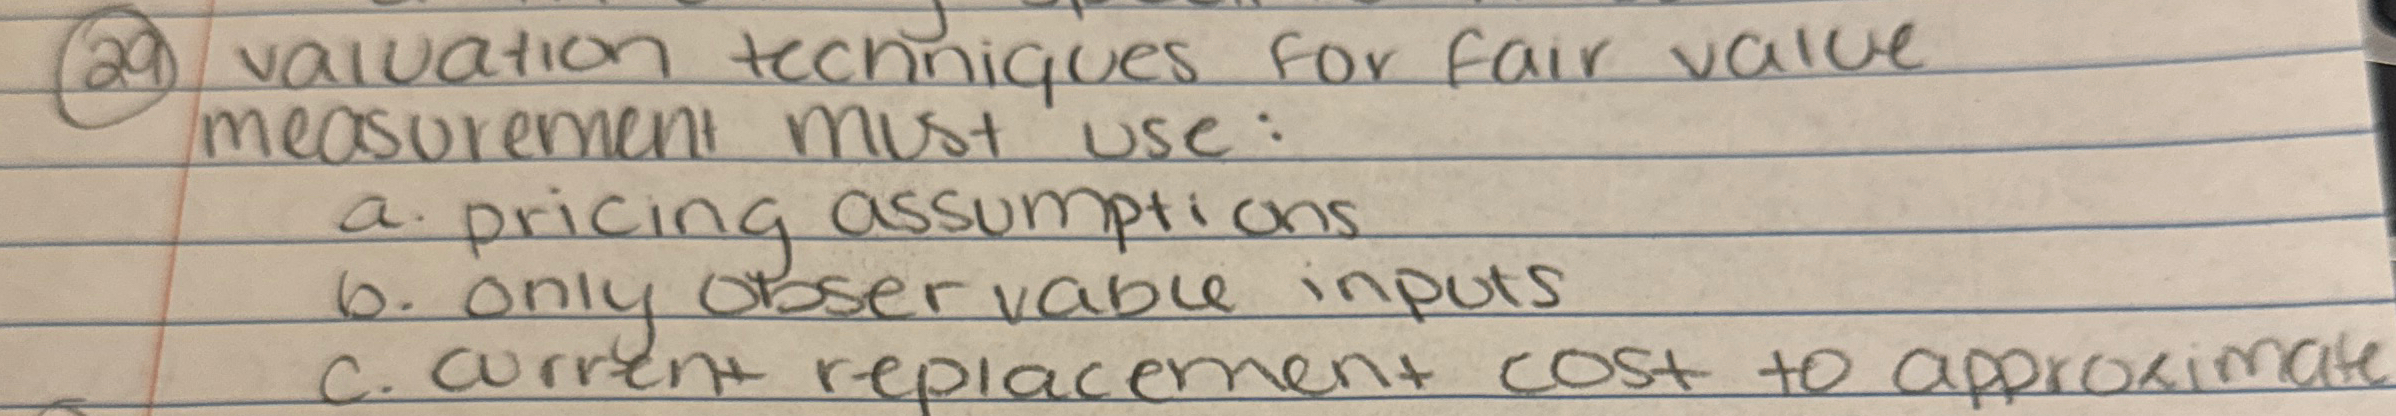 29 valuation techniques for fair value
measurement must use:
a. pricing assumptions
b. only observable inputs
c. current replacement cost to approximate